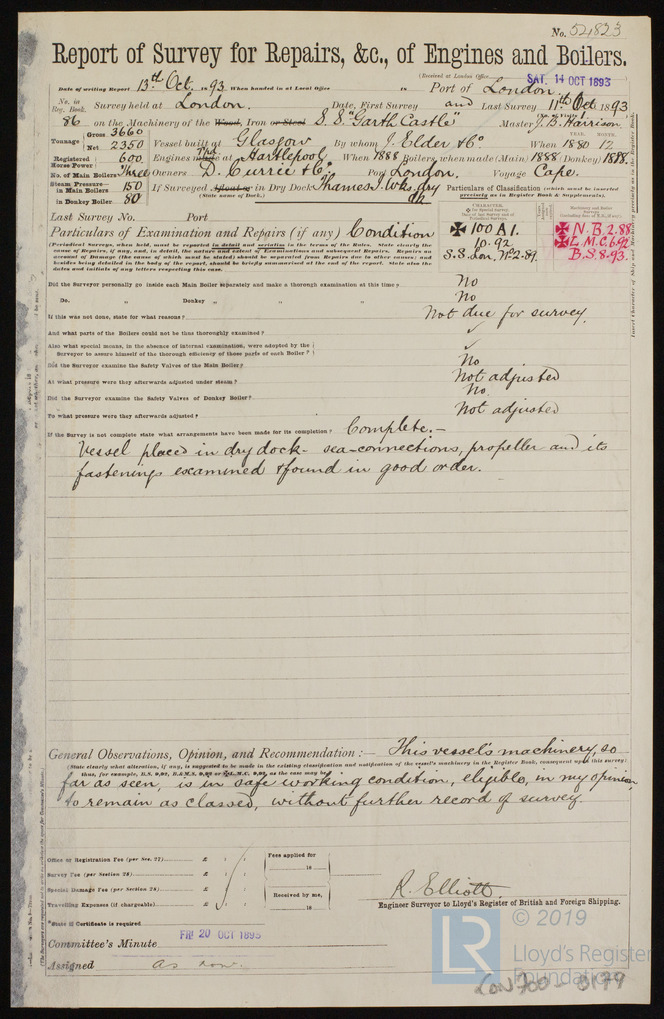 No. 52823
Report of Survey for Repairs, &c., of Engines and Boilers.
(Received at London Office SAT. 14 OCT 1893
Date of writing Report 13th Oct. 1893 When handed in at Local Office 18 Port of London.
No. in Reg. Book. 86 Survey held at London. Date, First Survey and Last Survey 11th Oct 1893
on the Machinery of the Wood, Iron or Steel S.S. "Garth Castle" Master J. B. Harrison
Tonnage Gross 3660 Net 2350 Vessel built at Glasgow By whom J. Elder & Co. When 1880 12
YEAR. MONTH.
Registered Horse Power 600 Engines made at Hartlepool When 1888 Boilers, when made (Main) 1888 (Donkey) 1888.
No. of Main Boilers Three Owners D. Currie & Co. Port London. Voyage Cape.
Steam Pressure— in Main Boilers 150 in Donkey Boiler 80 If Surveyed Afloat or in Dry Dock Thames I. Wks dry
(State name of Dock.)
Particulars of Classification (which must be inserted precisely as in Register Book & Supplements).
Last Survey No. Port
Particulars of Examination and Repairs (if any) Condition
✠ 100 A1. 10.92 S.S. Lon. No. 2-89.
✠ N.B. 2.88 ✠ L.M.C. 6.92 B.S. 8-93.
(Periodical Surveys, when held, must be reported in detail and seriatim in the terms of the Rules. State clearly the
cause of Repairs, if any, and, in detail, the nature and extent of Examinations and subsequent Repairs. Repairs on
account of Damage (the cause of which must be stated) should be separated from Repairs due to other causes; and
besides being detailed in the body of the report, should be briefly summarised at the end of the report. State also the
dates and initials of any letters respecting this case.
Did the Surveyor personally go inside each Main Boiler separately and make a thorough examination at this time? No
Do. Donkey " " " No
If this was not done, state for what reasons? Not due for survey.
And what parts of the Boilers could not be thus thoroughly examined? ✓
Also what special means, in the absence of internal examination, were adopted by the
Surveyor to assure himself of the thorough efficiency of those parts of each Boiler? ✓
Did the Surveyor examine the Safety Valves of the Main Boiler? No
At what pressure were they afterwards adjusted under steam? Not adjusted
Did the Surveyor examine the Safety Valves of Donkey Boiler? No
To what pressure were they afterwards adjusted? Not adjusted
If the Survey is not complete state what arrangements have been made for its completion? Complete.—
Vessel placed in dry dock - sea-connections, propeller and its
fastenings examined & found in good order.
General Observations, Opinion, and Recommendation:— This vessel's machinery, so
(State clearly what alteration, if any, is suggested to be made in the existing classification and notification of the vessel's machinery in the Register Book, consequent upon this survey;
thus, for example, B.S. 9,92, B.&M.S. 9,92 or ✠L.M.C. 9,92, as the case may be)
far as seen, is in safe working condition, eligible, in my opinion,
to remain as classed, without further record of survey.
Office or Registration Fee (per Sec. 27) £
Survey Fee (per Section 28) £
Special Damage Fee (per Section 28) £
Travelling Expenses (if chargeable) £
Fees applied for
18
Received by me,
18
R. Elliott.
Engineer Surveyor to Lloyd's Register of British and Foreign Shipping.
State if Certificate is required
Committee's Minute FRI 20 OCT 1893
Assigned as now.
LR
© 2019
Lloyd's Register
Foundation
LON 700 - 0179